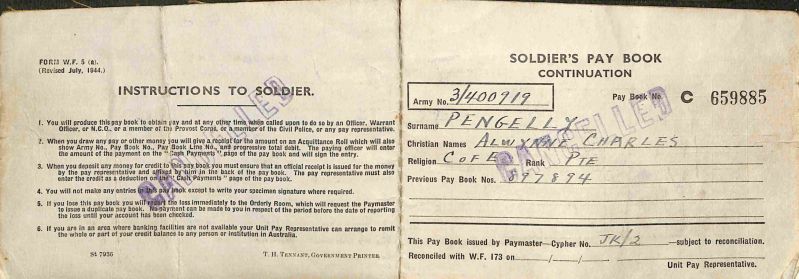 FORM W.F. 5 (a).
(Revised July, 1944.)
INSTRUCTIONS TO SOLDIER.
CANCELLED
1. You will produce this pay book to obtain pay and at any other time when called upon to do so by an Officer, Warrant
Officer, or N.C.O., or a member of the Provost Corps, or a member of the Civil Police, or any pay representative.
2. When you draw any pay or other money you will give a receipt for the amount on an Acquittance Roll which will also
show Army No., Pay Book No., Pay Book Line No., and progressive total debit. The paying officer will enter
the amount of the payment on the "Cash Payments" page of the pay book and will sign the entry.
3. When you deposit any money for credit to this pay book you must ensure that an official receipt is issued for the money
by the pay representative and signed by him in the back of the pay book. The pay representative must also
enter the credit as a deduction on the "Cash Payments" page of the pay book.
4. You will not make any entries in this pay book except to write your specimen signature where required.
5. If you lose this pay book you will report the loss immediately to the Orderly Room, which will request the Paymaster
to issue a duplicate pay book. No payment can be made to you in respect of the period before the date of reporting
the loss until your account has been checked.
6. If you are in an area where banking facilities are not available your Unit Pay Representative can arrange to remit
the whole or part of your credit balance to any person or institution in Australia.
St 7936
T. H. TENNANT, GOVERNMENT PRINTER
SOLDIER'S PAY BOOK
CONTINUATION
Army No. 3/400919
Pay Book No. C 659885
Surname PENGELLY
Christian Names ALWYNNE CHARLES
Religion C of E Rank PTE
Previous Pay Book Nos. 897894
CANCELLED
This Pay Book issued by Paymaster—Cypher No. JK/2 —subject to reconciliation.
Reconciled with W.F. 173 on / /
Unit Pay Representative.